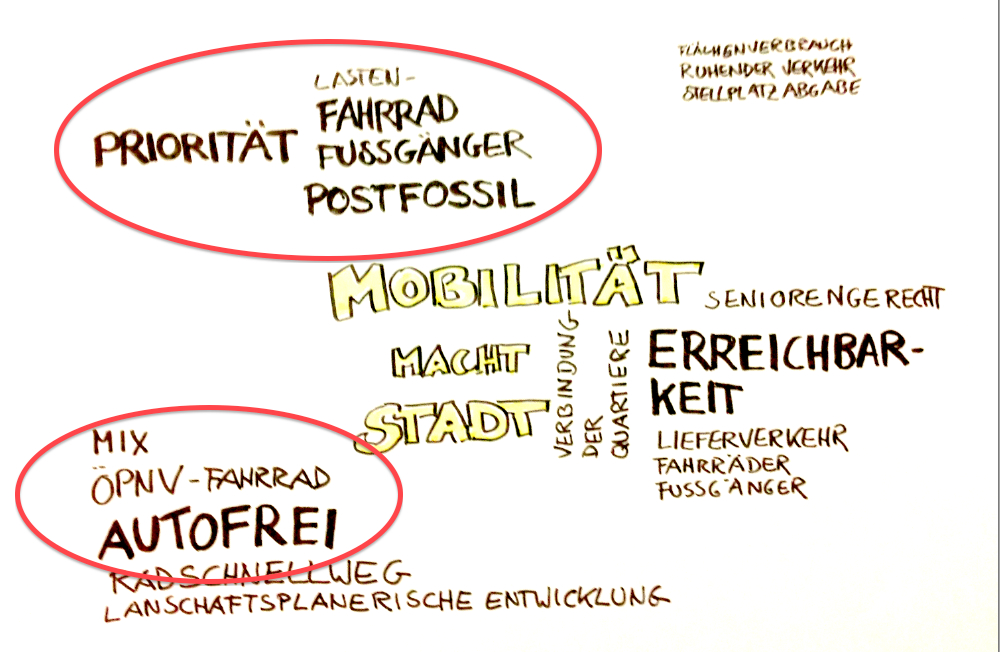 FLÄCHENVERBRAUCH
RUHENDER VERKEHR
STELLPLATZABGABE
PRIORITÄT
LASTEN-
FAHRRAD
FUSSGÄNGER
POSTFOSSIL
MOBILITÄT
MACHT
STADT
SENIORENGERECHT
VERBINDUNG
DER
QUARTIERE
ERREICHBAR-
KEIT
LIEFERVERKEHR
FAHRRÄDER
FUSSGÄNGER
MIX
ÖPNV-FAHRRAD
AUTOFREI
RADSCHNELLWEG
LANSCHAFTSPLANERISCHE ENTWICKLUNG